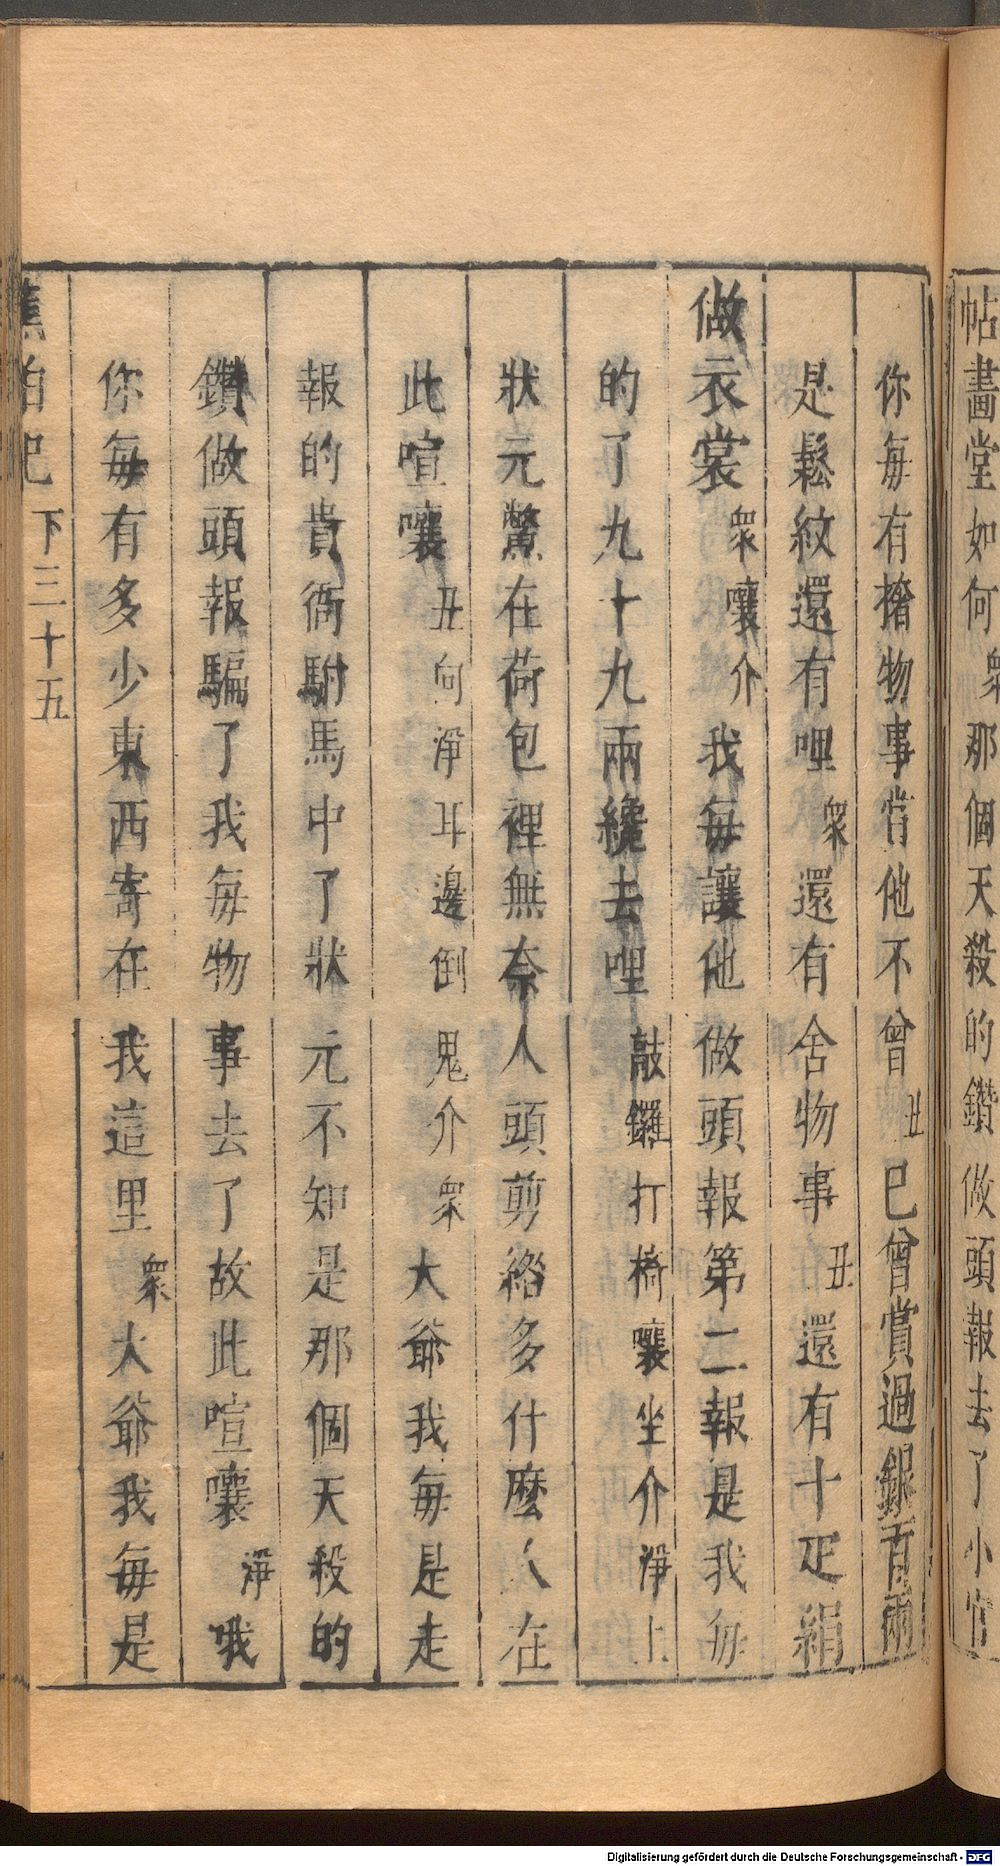 帖畵堂如何衆那個天殺的鑽做頭報去了小官
你每有撦物事賞他不曾丑已曾賞過銀百兩
是鬆紋還有哩衆還有舍物事丑還有十疋絹
做衣裳衆嚷介我每讓他做頭報第二報是我每
的了九十九兩纔去哩敲鑼打椅嚷坐介淨上
狀元驚在荷包裡無奈人頭剪綹多什麽人在
此喧嚷丑向淨耳邊倒鬼介衆大爺我每是走
報的貴衙駙馬中了狀元不知是那個天殺的
鑽做頭報騙了我每物事去了故此喧嚷淨哦
你每有多少東西寄在我這里衆大爺我每是
蕉帕記 下三十五
Digitalisierung gefördert durch die Deutsche Forschungsgemeinschaft - DFG